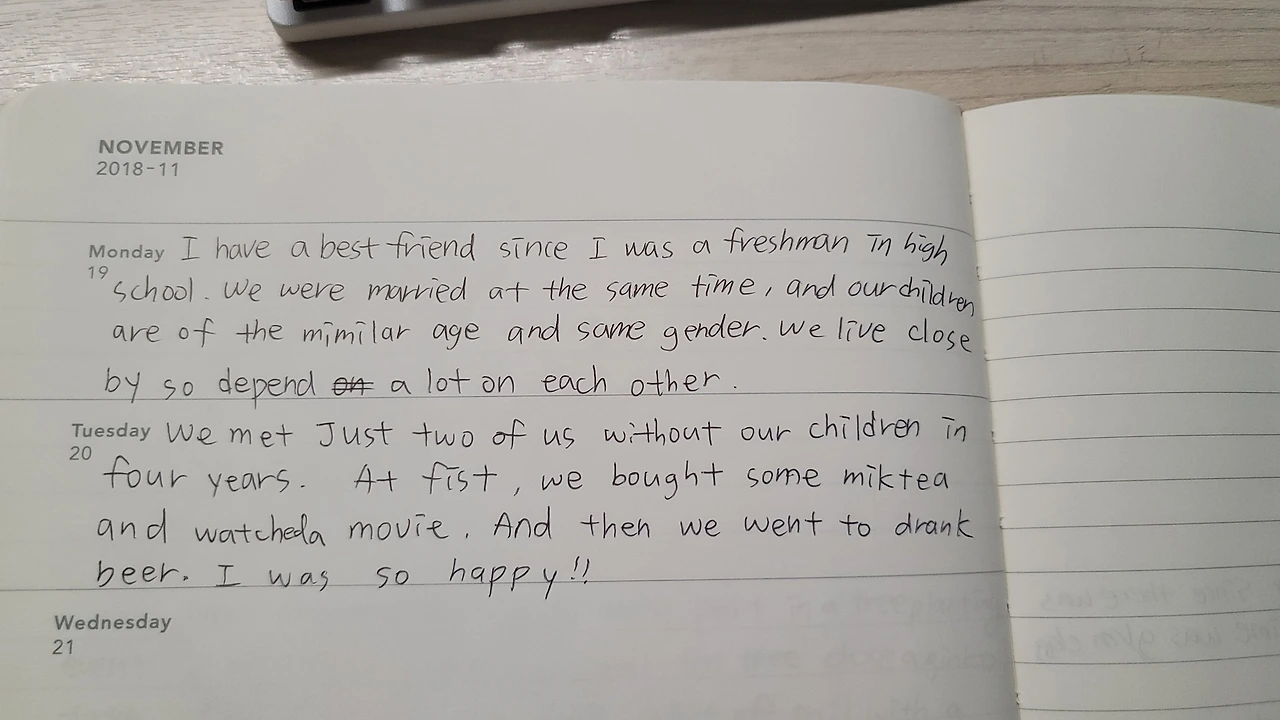 NOVEMBER
2018-11
Monday I have a best friend since I was a freshman in high
19
school. We were married at the same time, and our children
are of the mimilar age and same gender. We live close
by so depend on a lot on each other.
Tuesday We met Just two of us without our children in
20
four years. At fist, we bought some miktea
and watched a movie. And then we went to drank
beer. I was so happy!!
Wednesday
21